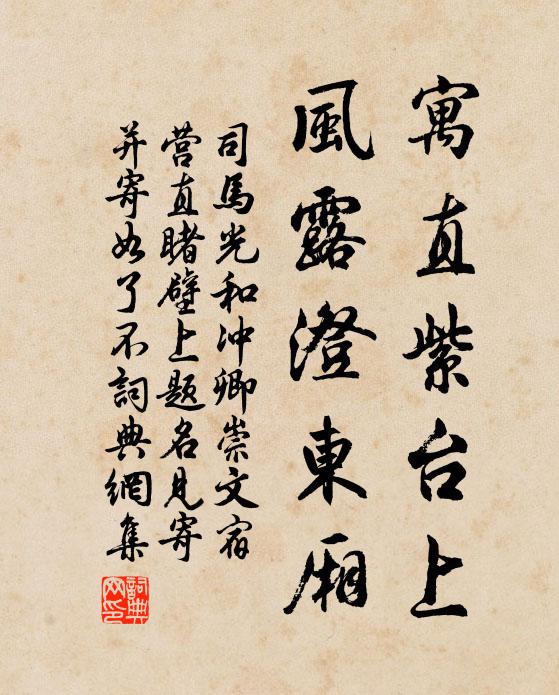 寓直紫台上
風露澄東廂
司馬光和沖卿崇文宿
营直睹壁上題名見寄
并寄如了不詞典網集
詞典網印